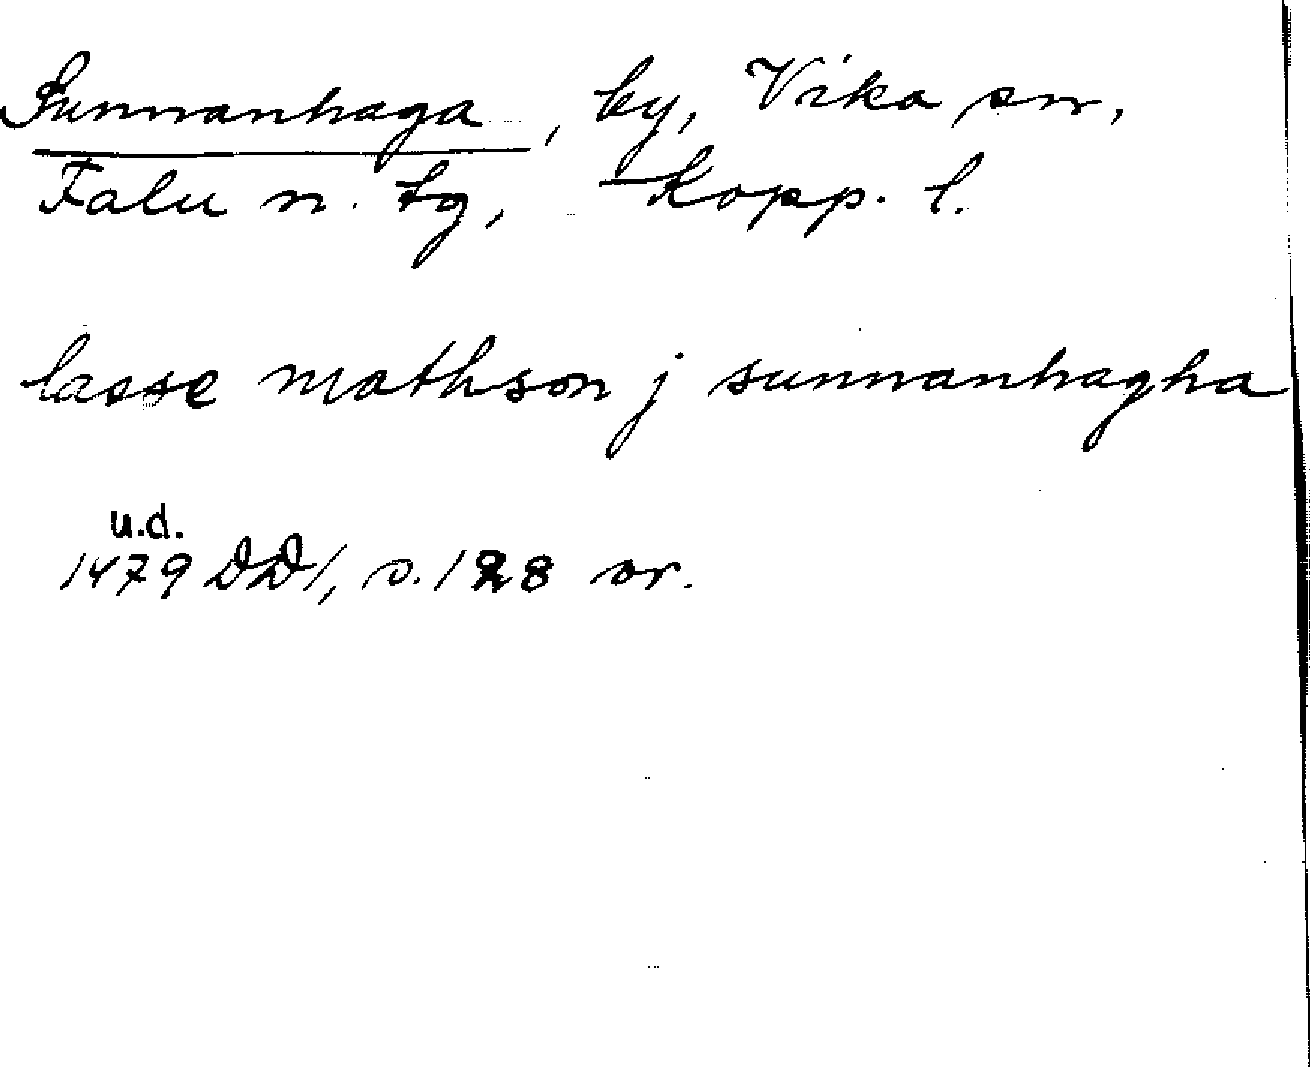 Sunnanhaga, by, Vika sn,
Falu n. tg, Kopp. l.
lasse mathson j sunnanhagha
u.d.
1479 DD1, s. 128 or.